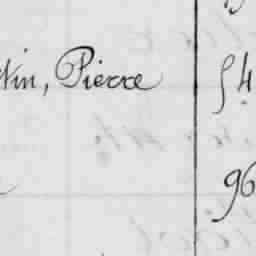 tin, Pierre 54
96